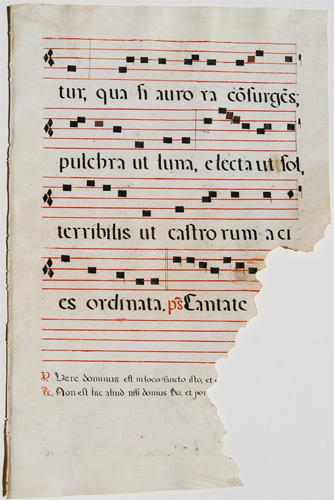 tur, qua si auro ra cōsurgēs;
pulchra ut luna, electa ut sol,
terribilis ut castro rum a ci
es ordinata. ps Cantate
℣. Vere dominus est in loco sancto isto, et
℟. Non est hic aliud nisi domus Dei, et por